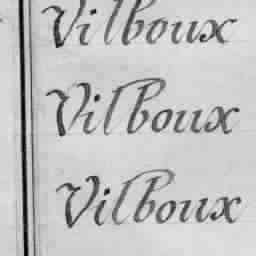 Vilboux
Vilboux
Vilboux